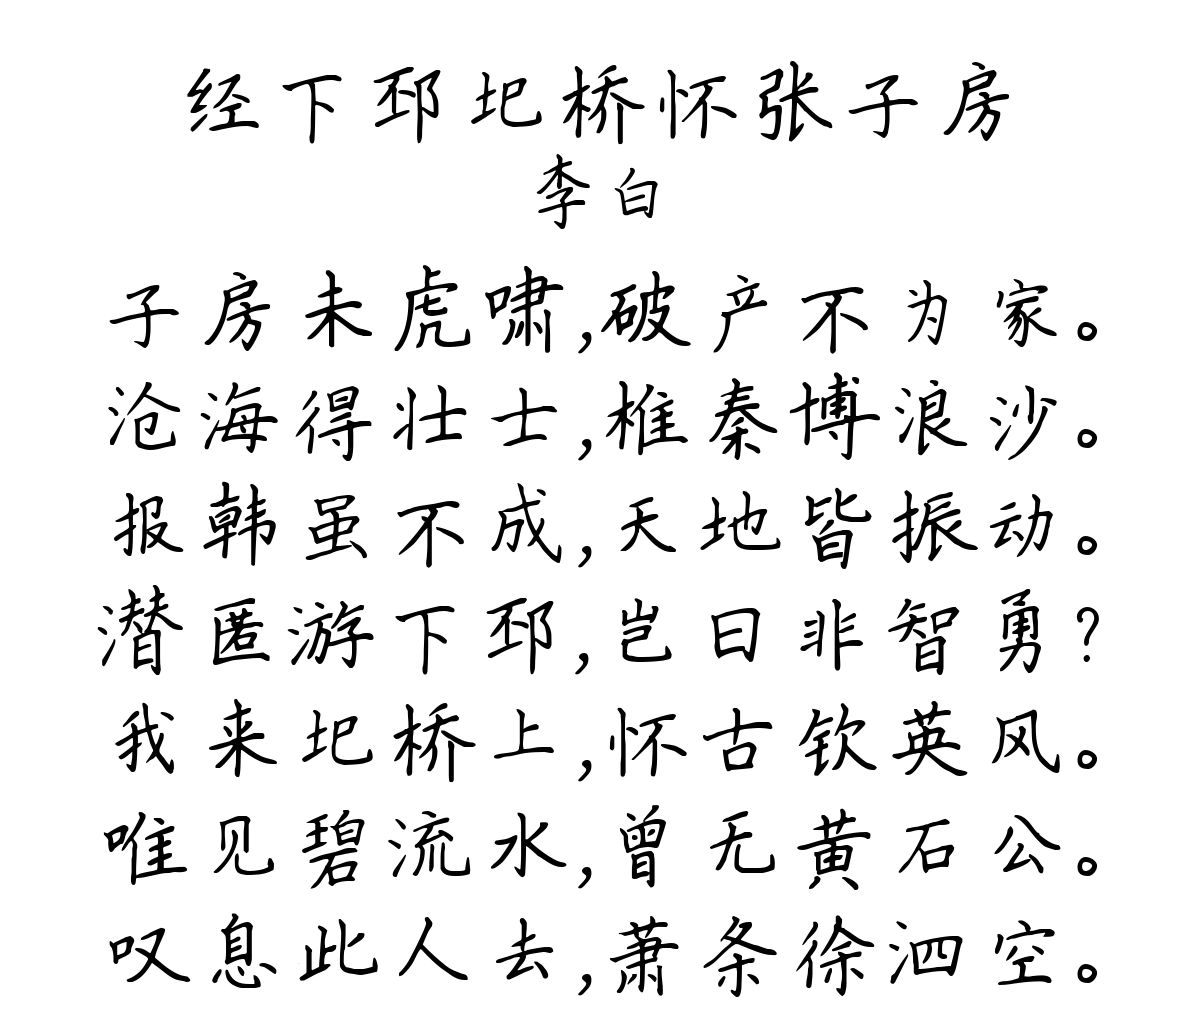 经下邳圯桥怀张子房
李白
子房未虎啸,破产不为家。
沧海得壮士,椎秦博浪沙。
报韩虽不成,天地皆振动。
潜匿游下邳,岂曰非智勇?
我来圯桥上,怀古钦英风。
唯见碧流水,曾无黄石公。
叹息此人去,萧条徐泗空。